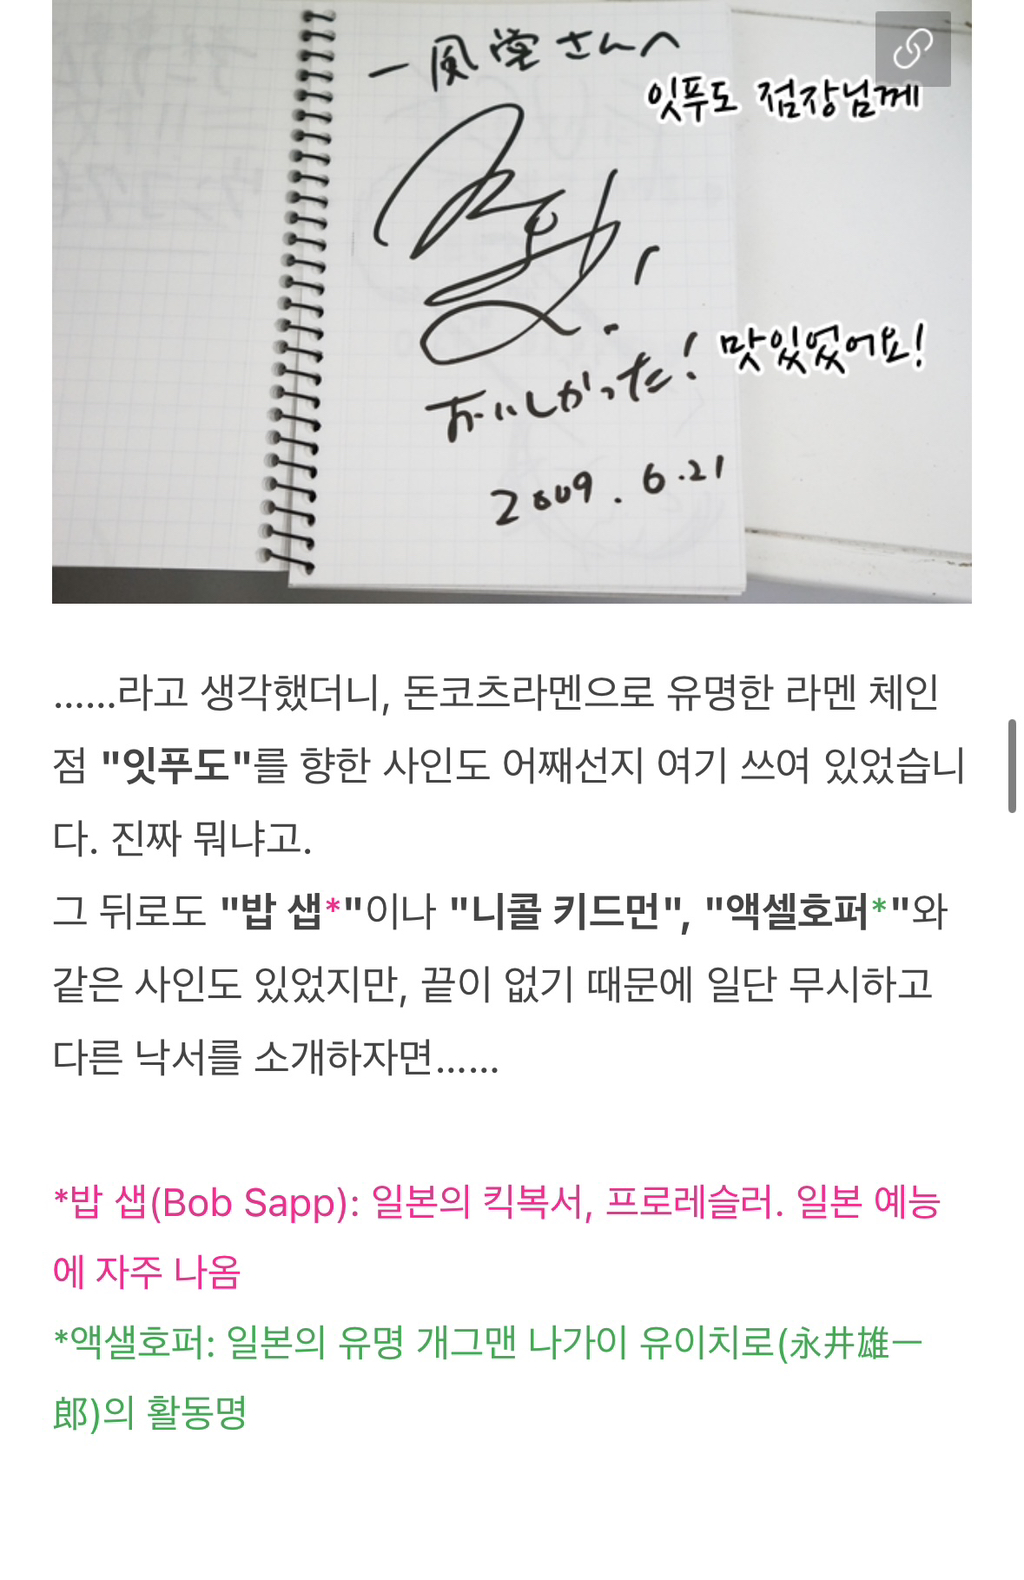 一風堂さんへ
잇푸도 점장님께
おいしかった!
맛있었어요!
2009.6.21
......라고 생각했더니, 돈코츠라멘으로 유명한 라멘 체인
점 "잇푸도"를 향한 사인도 어째선지 여기 쓰여 있었습니
다. 진짜 뭐냐고.
그 뒤로도 "밥 샙*"이나 "니콜 키드먼", "액셀호퍼*"와
같은 사인도 있었지만, 끝이 없기 때문에 일단 무시하고
다른 낙서를 소개하자면......
*밥 샙(Bob Sapp): 일본의 킥복서, 프로레슬러. 일본 예능
에 자주 나옴
*액샐호퍼: 일본의 유명 개그맨 나가이 유이치로(永井雄一
郎)의 활동명